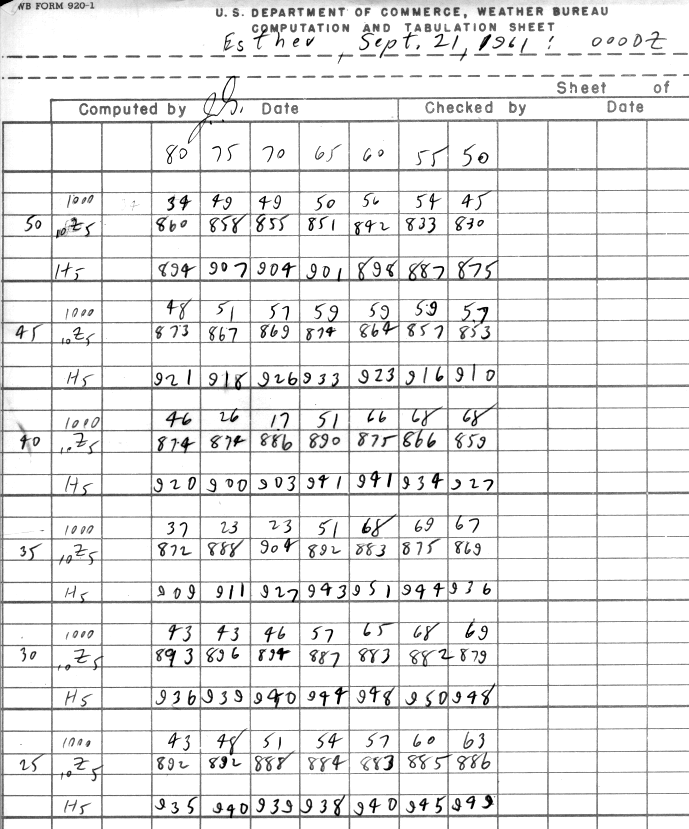 WB FORM 920-1
U. S. DEPARTMENT OF COMMERCE, WEATHER BUREAU
COMPUTATION AND TABULATION SHEET
Esther, Sept. 21, 1961: 0000Z
Sheet of
Computed by J.S. Date Checked by Date
80 75 70 65 60 55 50
1000 34 49 49 50 56 54 45
50 10Z5 860 858 855 851 842 833 830
H5 894 907 904 901 898 887 875
1000 48 51 57 59 59 59 57
45 10Z5 873 867 869 874 864 857 853
H5 921 918 926 933 923 916 910
1000 46 26 17 51 66 68 68
40 10Z5 874 874 886 890 875 866 859
H5 920 900 903 941 941 934 927
1000 37 23 23 51 68 69 67
35 10Z5 872 888 904 892 883 875 869
H5 909 911 927 943 951 944 936
1000 43 43 46 57 65 68 69
30 10Z5 893 896 894 887 883 882 879
H5 936 939 940 944 948 950 948
1000 43 48 51 54 57 60 63
25 10Z5 892 892 888 884 883 885 886
H5 935 940 939 938 940 945 949